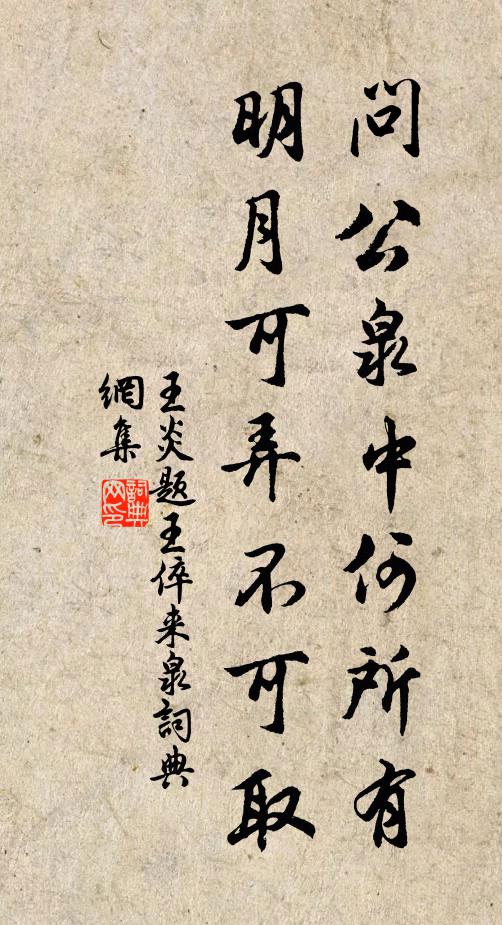 問公泉中何所有
明月可弄不可取
王炎题王倅来泉詞典
網集
詞典网印